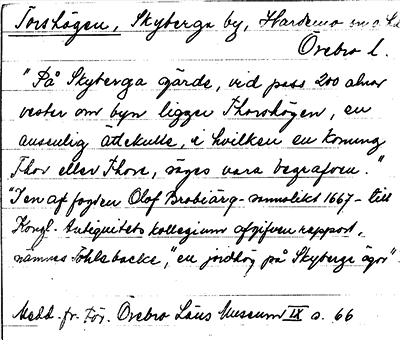 Torshögen, Skyberga by, Hardemo sn o. hd
Örebro l.
"På Skyberga gärde, vid pass 200 alnar
vester om byn ligger Thorshögen, en
ansenlig ättekulle, i hvilken en konung
Thor eller Thore, säges vara begrafven."
"I en af fogden Olof Brobiärg - sannolikt 1667 - till
Kongl. Antiquitets kollegium afgifven rapport,
nämnes Tohlsbacke, "en jordhög på Skyberge ägor".
Medd. fr. För. Örebro Läns Museum IX s. 66